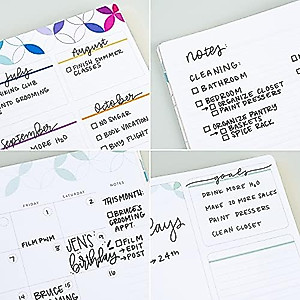 August
FINISH SUMMER
CLASSES
July
INTO GROOMING
September
MORE H2O
October
NO SUGAR
BOOK VACATION
BUY FLIGHT
notes
CLEANING:
BATHROOM
BEDROOM
→ ORGANIZE CLOSET
→ PAINT DRESSERS
ORGANIZE PANTRY
→ BASKETS
→ SPICE RACK
FRIDAY
SATURDAY
NOTES
1
2
THIS MONTH:
BRUCE'S
GROOMING
APPT.
FILM PWM
JEN'S
Birthday
8
9
FILM
→ EDIT
→ POST
15
16
BRUCE
goals
DRINK MORE H2O
MAKE 20 MORE SALES
PAINT DRESSERS
CLEAN CLOSET
days
→ 24th